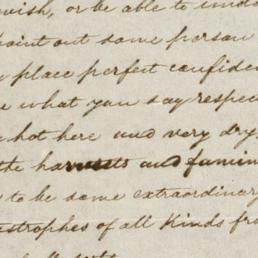 wish, or be able to
point out some person
place perfect confiden
what you say respec
hot here and very dry
the harvests and famin
to be some extraordinary
astrophes of all Kinds fro